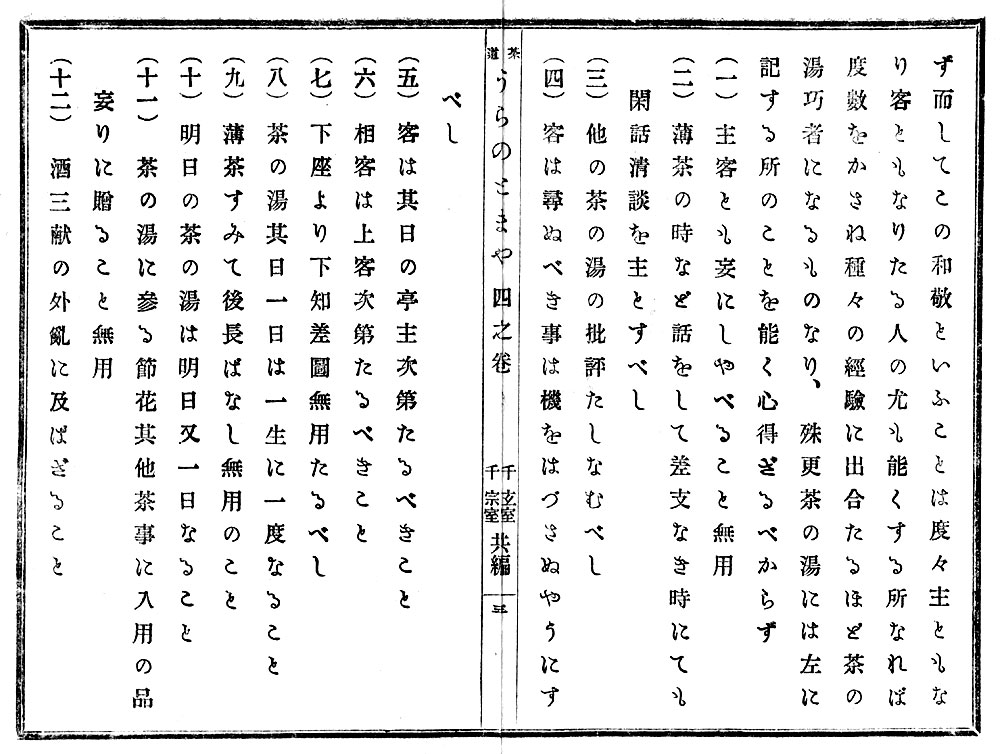 ず而してこの和敬といふことは度々主ともな
り客ともなりたる人の尤も能くする所なれば
度數をかさね種々の經驗に出合たるほど茶の
湯巧者になるものなり、殊更茶の湯には左に
記する所のことを能く心得ざるべからず
(一) 主客とも妄にしやべること無用
(二) 薄茶の時など話をして差支なき時にても
閑話清談を主とすべし
(三) 他の茶の湯の批評たしなむべし
(四) 客は尋ぬべき事は機をはづさぬやうにす
茶道 うらのとまや 四之卷 千玄室 千宗室 共編 三
べし
(五) 客は其日の亭主次第たるべきこと
(六) 相客は上客次第たるべきこと
(七) 下座より下知差圖無用たるべし
(八) 茶の湯其日一日は一生に一度なること
(九) 薄茶すみて後長ばなし無用のこと
(十) 明日の茶の湯は明日又一日なること
(十一) 茶の湯に參る節花其他茶事に入用の品
妄りに贈ること無用
(十二) 酒三献の外亂に及ばざること